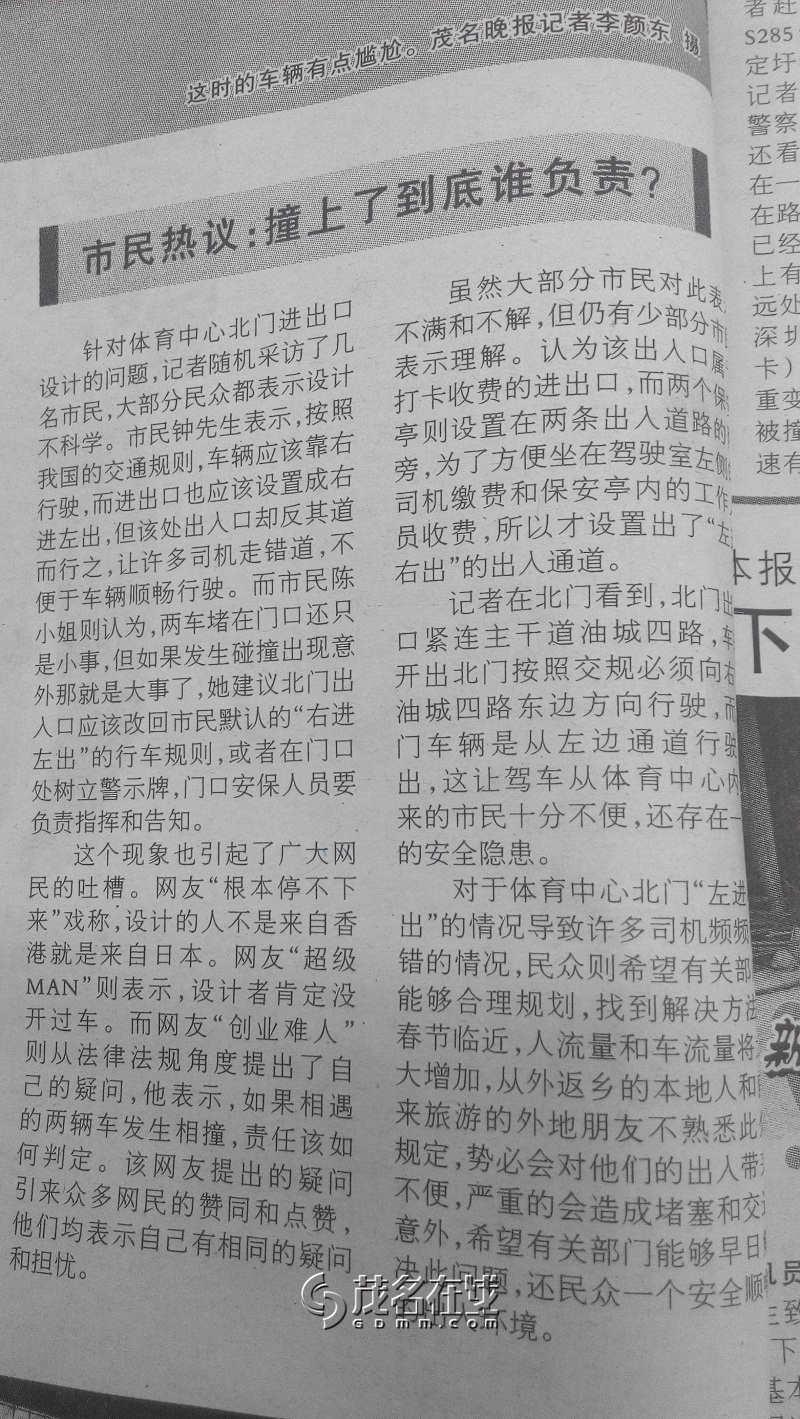 这时的车辆有点尴尬。茂名晚报记者李颜东 摄
市民热议：撞上了到底谁负责？
针对体育中心北门进出口
设计的问题，记者随机采访了几
名市民，大部分民众都表示设计
不科学。市民钟先生表示，按照
我国的交通规则，车辆应该靠右
行驶，而进出口也应该设置成右
进左出，但该处出入口却反其道
而行之，让许多司机走错道，不
便于车辆顺畅行驶。而市民陈
小姐则认为，两车堵在门口还只
是小事，但如果发生碰撞出现意
外那就是大事了，她建议北门出
入口应该改回市民默认的“右进
左出”的行车规则，或者在门口
处树立警示牌，门口安保人员要
负责指挥和告知。
这个现象也引起了广大网
民的吐槽。网友“根本停不下
来”戏称，设计的人不是来自香
港就是来自日本。网友“超级
MAN”则表示，设计者肯定没
开过车。而网友“创业难人”
则从法律法规角度提出了自
己的疑问，他表示，如果相遇
的两辆车发生相撞，责任该如
何判定。该网友提出的疑问
引来众多网民的赞同和点赞，
他们均表示自己有相同的疑问
和担忧。
虽然大部分市民对此表
不满和不解，但仍有少部分市
表示理解。认为该出入口属
打卡收费的进出口，而两个保
亭则设置在两条出入道路的
旁，为了方便坐在驾驶室左侧
司机缴费和保安亭内的工作
员收费，所以才设置出了“左
右出”的出入通道。
记者在北门看到，北门出
口紧连主干道油城四路，车
开出北门按照交规必须向右
油城四路东边方向行驶，而
门车辆是从左边通道行驶
出，这让驾车从体育中心内
来的市民十分不便，还存在一
的安全隐患。
对于体育中心北门“左进
出”的情况导致许多司机频频
错的情况，民众则希望有关部
能够合理规划，找到解决方法
春节临近，人流量和车流量将
大增加，从外返乡的本地人和
来旅游的外地朋友不熟悉此
规定，势必会对他们的出入带
不便，严重的会造成堵塞和交
意外，希望有关部门能够早日
决此问题，还民众一个安全顺
环境。
者赶
S285
定圩
记者
警察
还看
在一
在路
已经
上有
远处
深圳
卡）
重变
被撞
速有
本报
下
新
员
主致
下
基本
茂名在线
gdmm.com